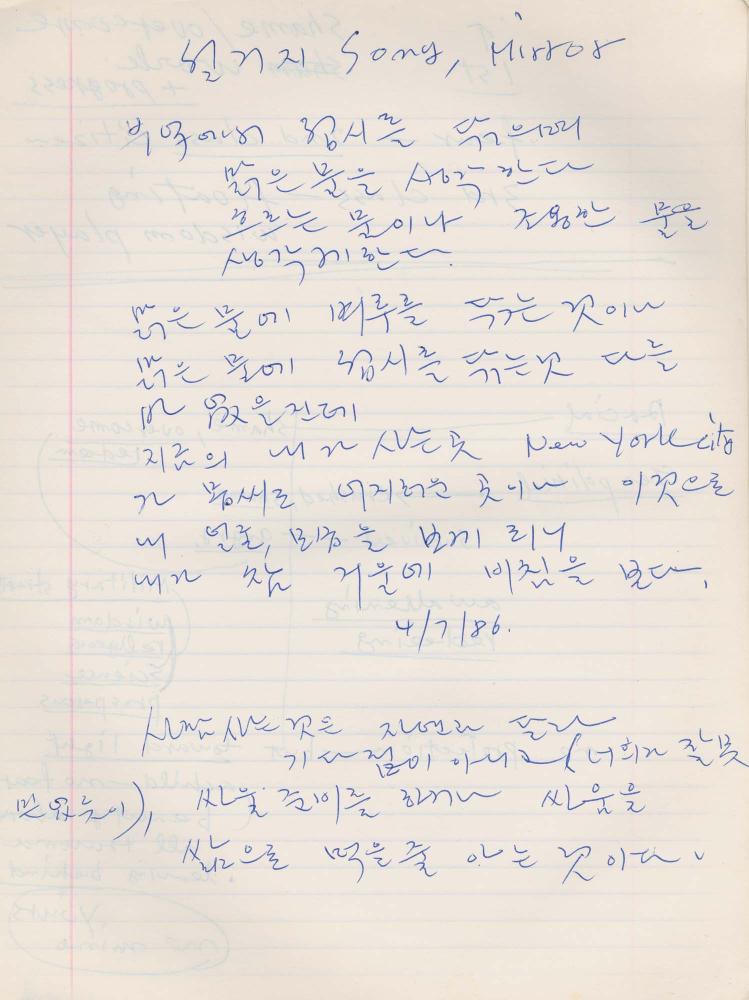 설거지 Song, Mirror
부엌에서 접시를 닦으며
맑은 물을 생각한다
흐르는 물이나 조용한 물을
생각케한다.
맑은 물에 벼루를 닦는 것이나
맑은 물에 접시를 닦는것 다를
바 없을진데
지금의 내가 사는곳 New York city
가 몹씨도 어지러운 곳이나 이것으로
내 얼굴, 모습을 보게 되니
내가 참 거울에 비침을 본다.
4/7/86.
사람사는것은 자연과 달라
기다림이 아니고 (너희가 잘못
믿었듯이), 싸울 준비를 하거나 싸움을
삶으로 먹을줄 아는 것이다.